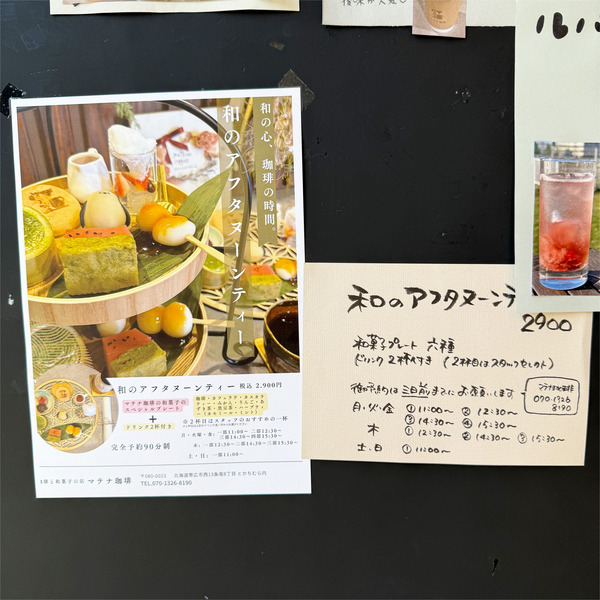 和の心、珈琲の時間。
和のアフタヌーンティー
和のアフタヌーンティー 税込 2,900円
マテナ珈琲の和菓子の
スペシャルプレート
+
ドリンク2杯付き
完全予約90分制
※2杯目はスタッフのおすすめの一杯
月・火曜・金:一部11:00〜 二部12:30〜
三部14:30〜四部15:30〜
木:一部12:30〜二部14:30〜三部15:30〜
土・日:一部11:00〜
マテナ珈琲
〒080-0023 北海道帯広市西13条南8丁目 とかちむら内
TEL.070-1326-8190
和のアフタヌーンテ
2900
和菓子プレート 六種
ドリンク 2杯付き (2杯目はスタッフセレクト)
御予約は三日前までにお願いします
マテナ珈琲
070-1326
8190
月・火・金 ①11:00〜 ②12:30〜
③14:30〜 ④15:30〜
木 ①12:30〜 ②14:30〜 ③15:30〜
土・日 ①11:00〜